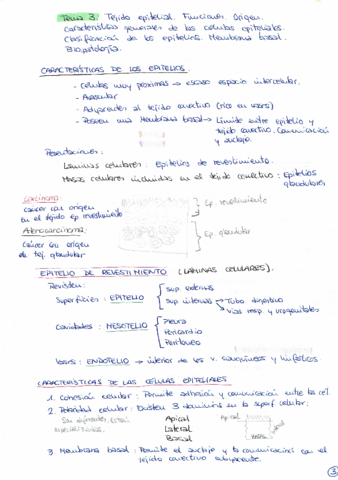 Tema 3: Tejido epitelial. Funciones. Origen.
Características generales de las células epiteliales.
Clasificación de los epitelios. Membrana basal.
Biopatología.
CARACTERÍSTICAS DE LOS EPITELIOS.
- Células muy próximas → escaso espacio intercelular.
- Avascular
- Adyacentes al tejido conectivo (rico en vasos)
- Poseen una Membrana basal → Límite entre epitelio y
tejido conectivo. Comunicación
y anclaje.
Presentaciones:
Láminas celulares: Epitelios de revestimiento.
Masas celulares incluidas en el tejido conectivo: Epitelios
glandulares
Carcinoma:
cáncer con origen
en el tejido ep revestimiento
Adenocarcinoma:
Cáncer con origen
de tej. glandular
Ep. revestimiento
Ep. glandular
EPITELIO DE REVESTIMIENTO (LÁMINAS CELULARES).
Revisten:
Superficies: EPITELIO
sup externas
sup internas → Tubo digestivo
→ Vías resp. y urogenitales
Cavidades: MESOTELIO
Pleura
Pericardio
Peritoneo
Vasos: ENDOTELIO → interior de los v. sanguíneos y linfáticos.
CARACTERÍSTICAS DE LAS CÉLULAS EPITELIALES
1. Cohesión celular: Permite adhesión y comunicación entre las cél.
2. Polaridad celular: Existen 3 dominios en la superf celular.
Apical
Lateral
Basal
Apical
3. Membrana basal: Permite el anclaje y la comunicación con el
tejido conectivo adyacente.
3